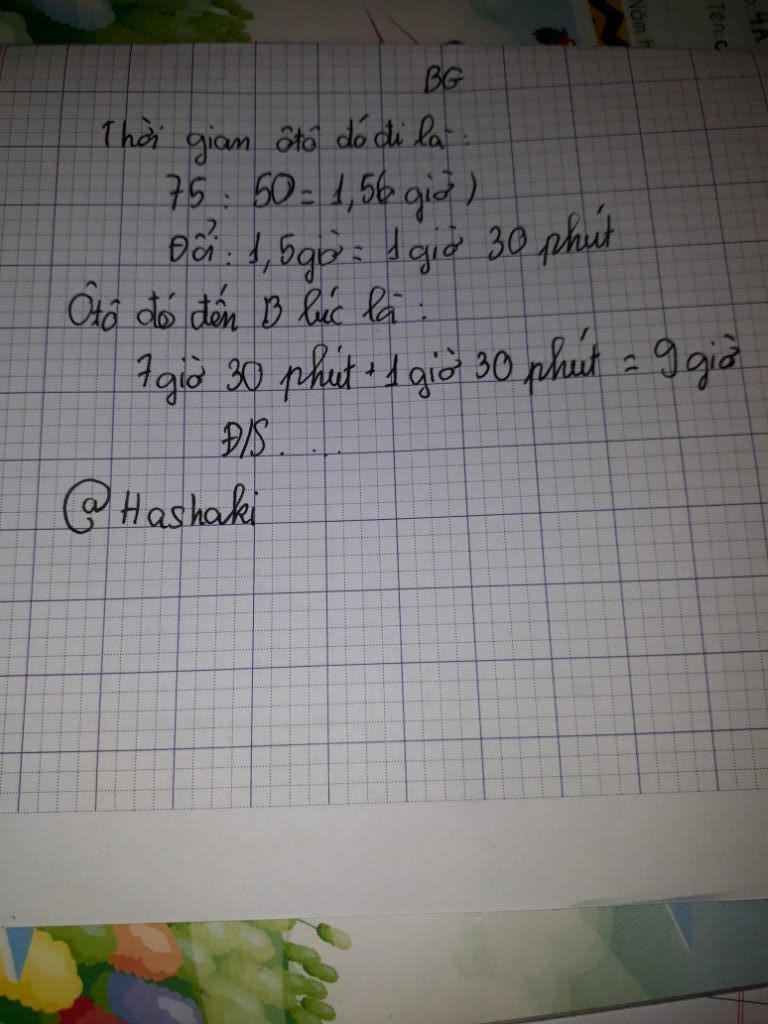 4A
Tên: C
Năm h
BG
Thời gian ôtô đó đi là:
75 : 50 = 1,5(giờ)
Đổi: 1,5giờ = 1 giờ 30 phút
Ôtô đó đến B lúc là:
7giờ 30 phút + 1 giờ 30 phút = 9giờ
Đ/S.....
@Hashaki